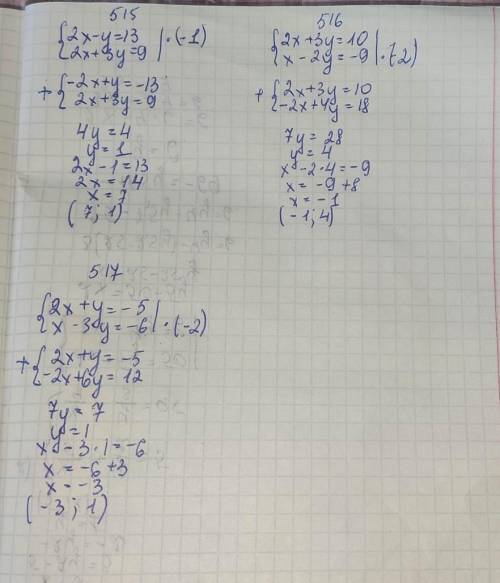 515
{2x-y=13 | ·(-1)
2x+3y=9
+ {-2x+y=-13
2x+3y=9
4y=4
y=1
2x-1=13
2x=14
x=7
(7; 1)
516
{2x+3y=10
x-2y=-9 | ·(-2)
+ {2x+3y=10
-2x+4y=18
7y=28
y=4
x-2·4=-9
x=-9+8
x=-1
(-1; 4)
517
{2x+y=-5
x-3y=-6 | ·(-2)
+ {2x+y=-5
-2x+6y=12
7y=7
y=1
x-3·1=-6
x=-6+3
x=-3
(-3; 1)